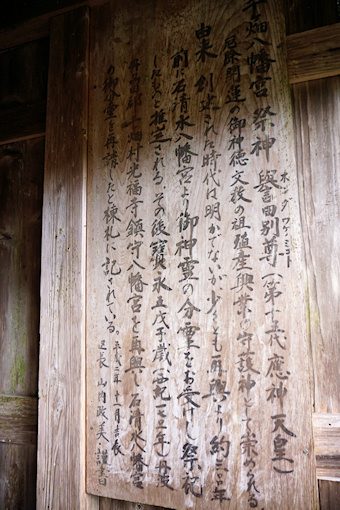 千畑八幡宮 祭神 譽田別尊(第十五代 應神天皇)
ホンダワケノミコト
厄除開運の御神徳 文教の祖 殖産興業の守護神として崇められる
由来 創建された時代は明かでないが 少くとも再興より約三百年
前に石清水八幡宮より御神霊の分霊をお受けし祭祀
したものと推定される その後寳永五戊子歳(西紀一七〇八年)丹波
畑村光福寺鎮守八幡宮を再興し石清水八幡宮
の御分霊を再請したと棟札に記されている。
平成二年十一月吉辰
区長 山内政美 謹書